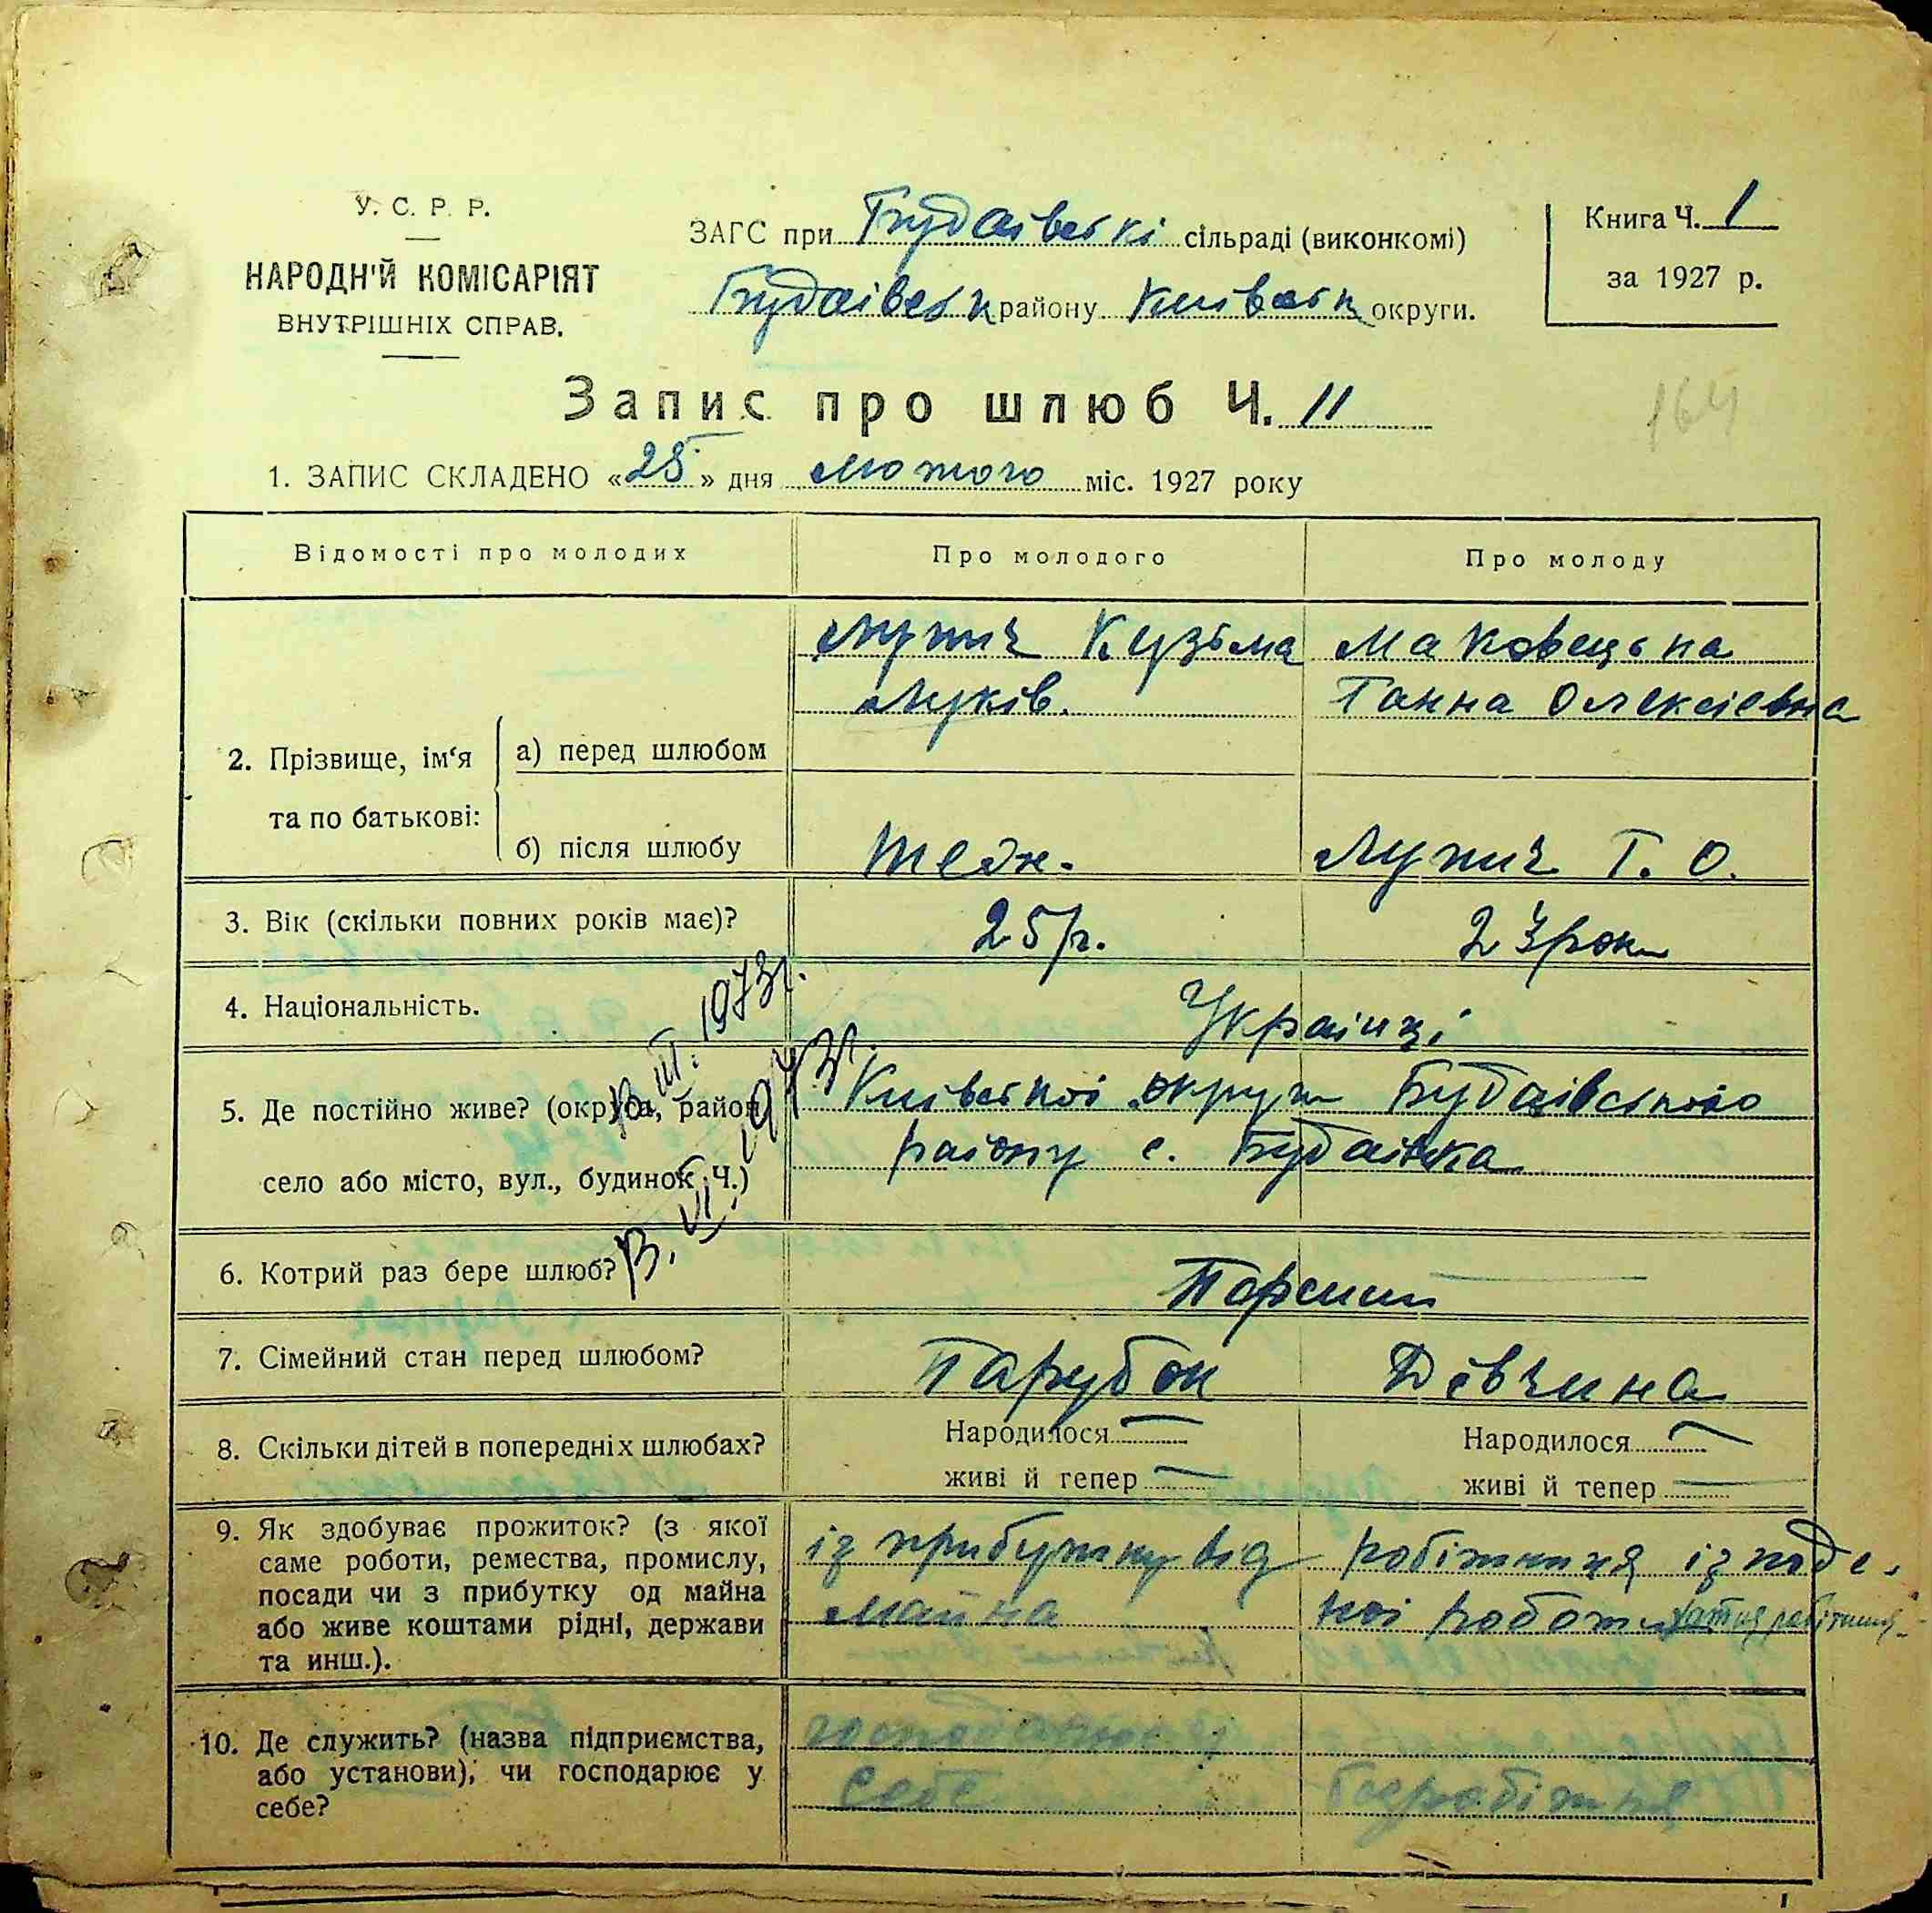 У. С. Р. Р.
НАРОДН'Й КОМІСАРІЯТ
ВНУТРІШНІХ СПРАВ.
ЗАГС при Будаівські сільраді (виконкомі)
Будаівськ району Киівськ округи.
Книга Ч. 1
за 1927 р.
Запис про шлюб Ч. 11
164
1. ЗАПИС СКЛАДЕНО «25» дня лютого міс. 1927 року
Відомості про молодих Про молодого Про молоду
2. Прізвище, ім'я та по батькові:
а) перед шлюбом
Кузьма
Луків.
Маковецька
Ганна Олексіевна
б) після шлюбу
теж. Т. О.
3. Вік (скільки повних років має)? 25 р. 23 роки
4. Національність. Українці
5. Де постійно живе? (округа, район,
село або місто, вул., будинок Ч.)
Киівськоі округи Будаівського
району с. Будаівка
В. III. 1973г.
В. VI. 1973г.
6. Котрий раз бере шлюб? Перший
7. Сімейний стан перед шлюбом? Парубок Дівчина
8. Скільки дітей в попередніх шлюбах?
Народилося —
живі й тепер —
Народилося —
живі й тепер —
9. Як здобуває прожиток? (з якої
саме роботи, ремества, промислу,
посади чи з прибутку од майна
або живе коштами рідні, держави
та инш.).
із прибутку від
майна
робітниця із поде-
ноі роботи хатня робітниця
10. Де служить? (назва підприємства,
або установи), чи господарює у
себе?
господарює у
себе
Безробітня
1